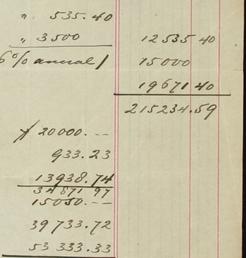 " 535.40
" 3500 12535 40
6% annual) 15000
19671 40
215234.59
$ 20000.--
933.23
13938.74
34871 97
15050.--
39733.72
53333.33